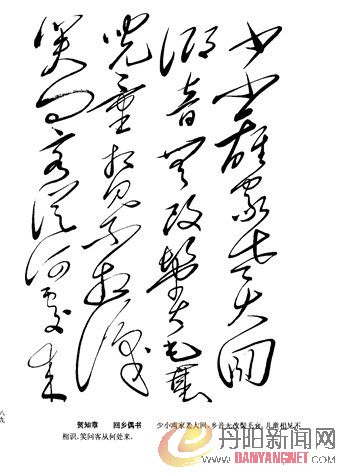 少小離家老大回
鄉音無改鬢毛衰
兒童相見不相識
笑問客從何處來
贺知章 回乡偶书 少小离家老大回，乡音无改鬓毛衰，儿童相见不
相识，笑问客从何处来。
八九
丹阳新闻网
DANYANGNEWS.NET